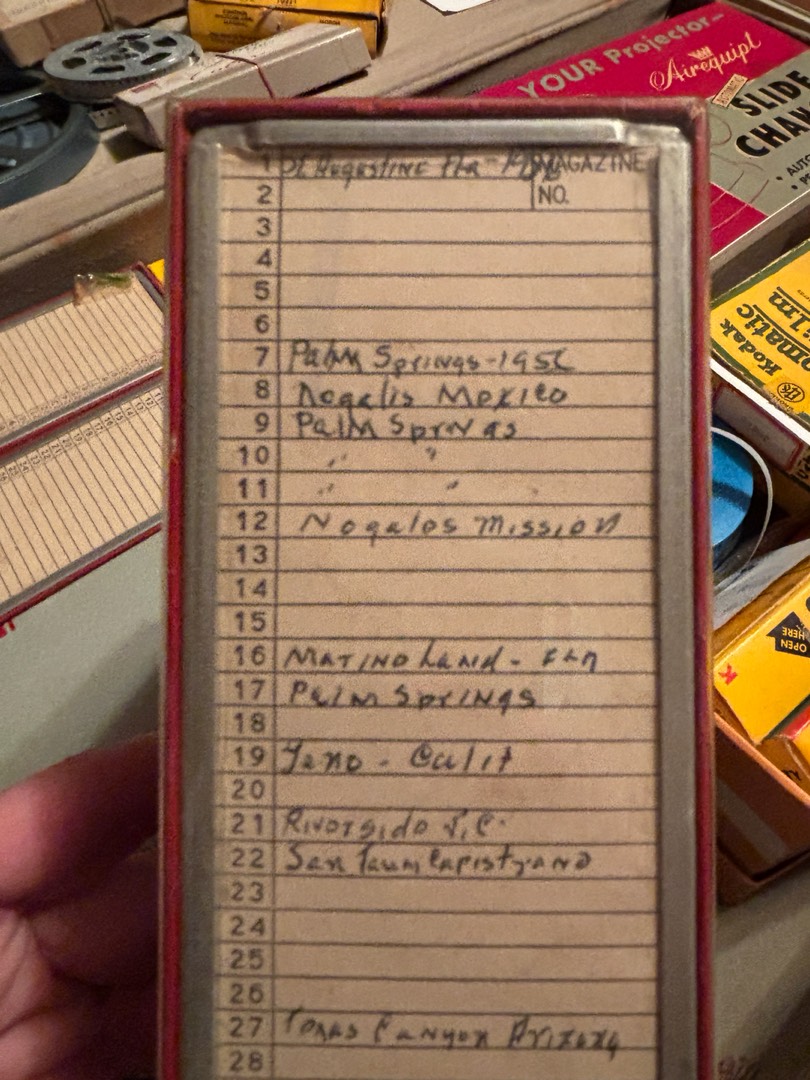 YOUR Projector-
Airequipt
AUTOMATIC
SLIDE
CHAN
• AUTO
Kodak
OPEN
HERE
K
1 St Augustine Fla - MAGAZINE
2 NO.
3
4
5
6
7 Palm Springs-1956
8 Nogalis Mexico
9 Palm Springs
10 " "
11 " "
12 Nogalos Mission
13
14
15
16 Marino Land - Fla
17 Palm Springs
18
19 - Calif
20
21 Riverside
22 San Capistrano
23
24
25
26
27 Texas Canyon Arizona
28